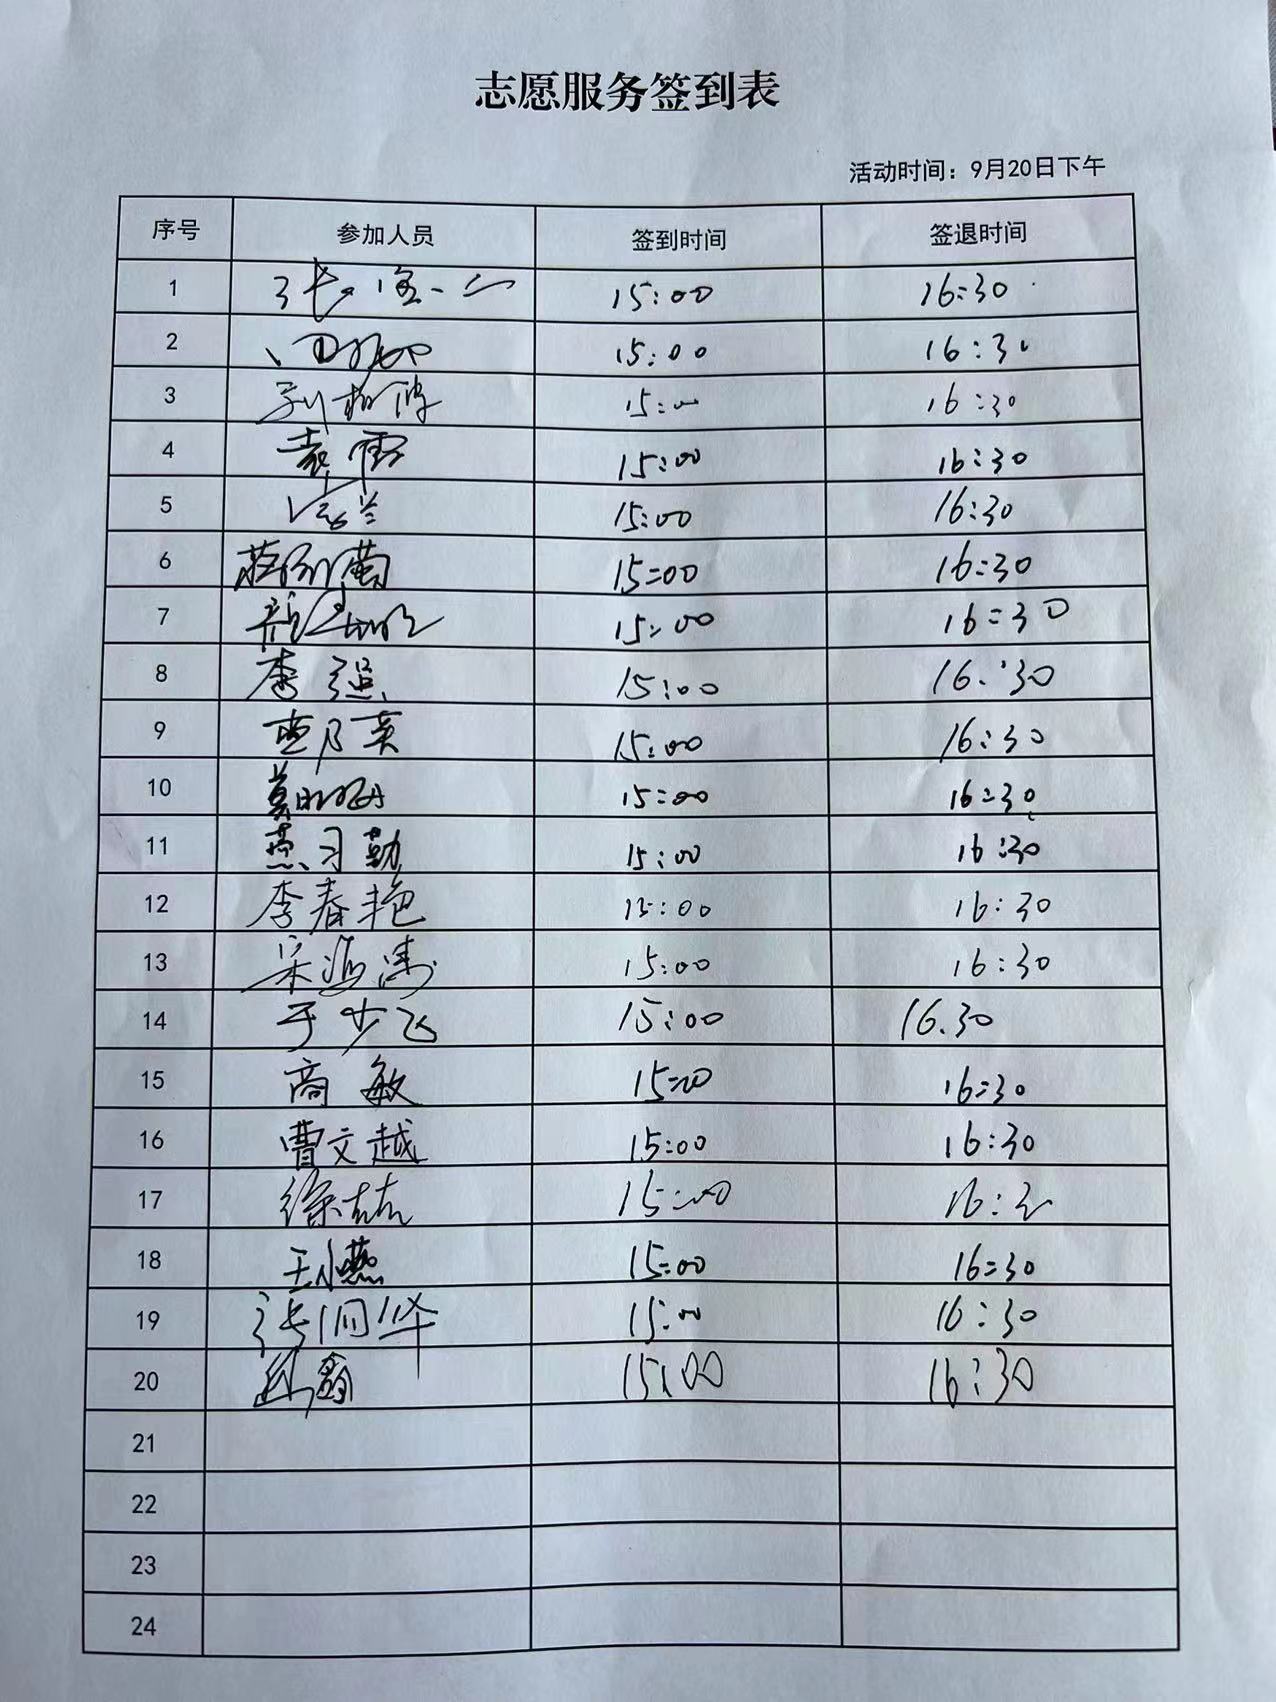 志愿服务签到表
活动时间：9月20日下午
序号 参加人员 签到时间 签退时间
1 15:00 16:30
2 15:00 16:30
3 15:00 16:30
4 袁雷 15:00 16:30
5 15:00 16:30
6 15:00 16:30
7 15:00 16:30
8 李强 15:00 16:30
9 15:00 16:30
10 15:00 16:30
11 燕习勤 15:00 16:30
12 李春艳 15:00 16:30
13 15:00 16:30
14 于少飞 15:00 16.30
15 高敏 15:00 16:30
16 曹文越 15:00 16:30
17 徐喆 15:00 16:30
18 王小燕 15:00 16:30
19 15:00 16:30
20 15:00 16:30
21
22
23
24